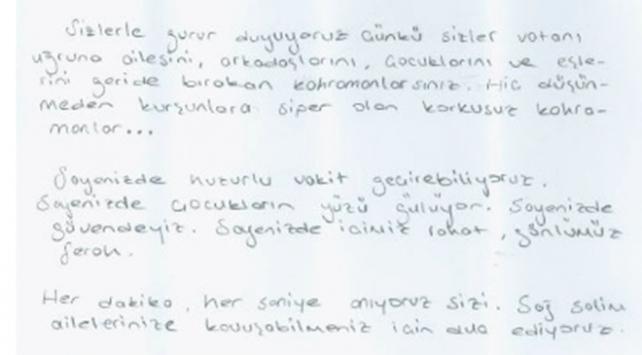 Sizlerle gurur duyuyoruz Çünkü sizler vatanı
uğruna ailesini, arkadaşlarını, çocuklarını ve eşle-
rini geride bırakan kahramanlarsınız. Hiç düşün-
meden kurşunlara siper olan korkusuz kahra-
manlar...
Sayenizde huzurlu vakit geçirebiliyoruz.
Sayenizde çocukların yüzü gülüyor. Sayenizde
güvendeyiz. Sayenizde içimiz rahat, gönlümüz
ferah.
Her dakika, her saniye anıyoruz sizi. Sağ salim
ailelerinize kavuşabilmeniz için dua ediyoruz.